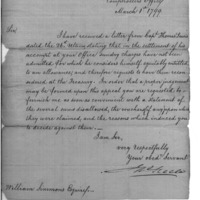 March 1st 1799
Sir
I have received a letter from Capt. Hamilton
dated the 26th ulto. stating that in the settlement of his
accounts at your Office sundry charges have not been
admitted, for which he considers himself equitably entitled
to an allowance; and therefore requests to have them reconsidered
at the Treasury. In order that a proper judgment
may be formed upon the appeal you are requested to
furnish me as soon as convenient with a statement of
the several sums disallowed, the vouchers if any upon which
they were claimed, and the reasons which induced you
to decide against them.
I am Sir,
very respectfully
Your obed. Servant
William Simmons Esquire.